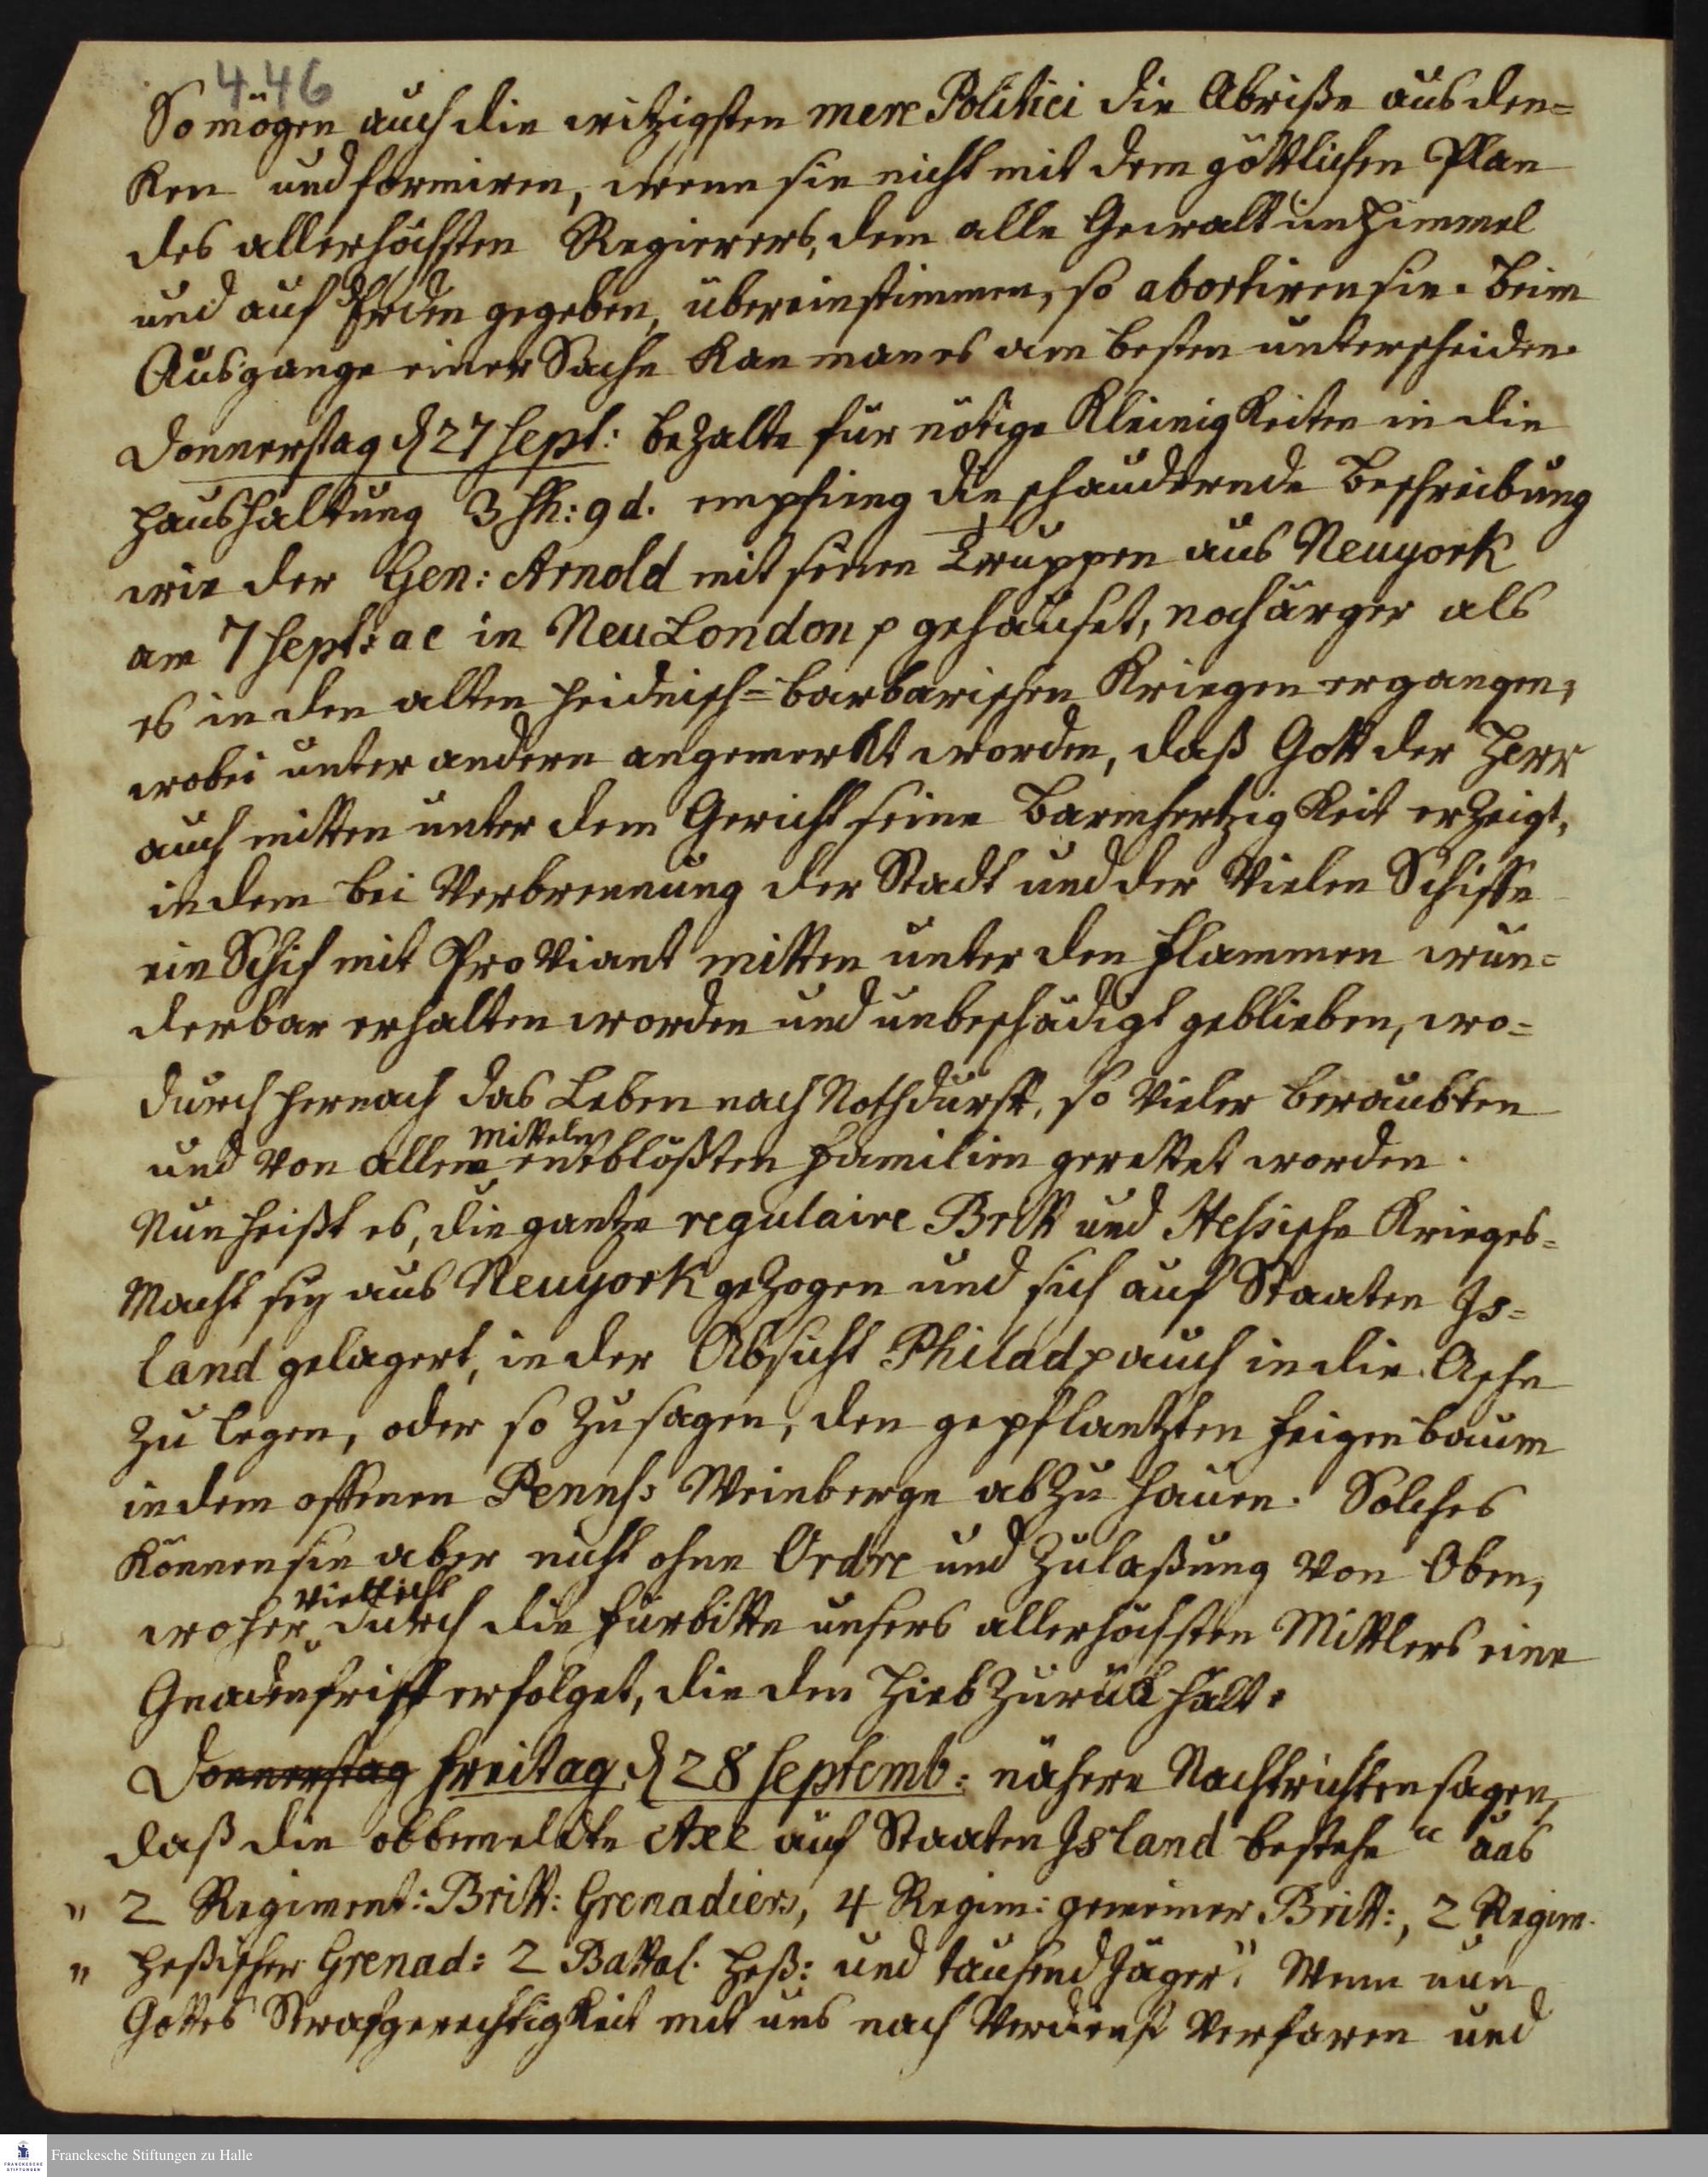 446
So mögen auch die witzigsten mere Politici die Abriße ausden=
ken und formiren, wenn sie nicht mit dem göttlichen Plan
des allerhöchsten Regierers, dem alle Gewalt im Himmel
und auf Erden gegeben, übereinstimmen, so abortiren sie. Beim
Ausgange einer Sache kan man es am besten unterscheiden.
Donnerstag d 27 Sept: bezalte für nötige Kleinigkeiten in die
Haushaltung 3 sh: 9 d. empfieng die schaudernde Beschreibung
wie der Gen: Arnold mit seinen Truppen aus Neuyork
am 7 Sept: ac in NeuLondon p gehauset, noch ärger als
es in den alten heidnisch=barbarischen Kriegen ergangen,
wobei unter andern angemerkt worden, daß Gott der Herr
auch mitten unter dem Gericht seine Barmhertzigkeit erzeigt,
indem bei Verbrennung der Stadt und der vielen Schiffe
ein Schif mit Proviant mitten unter den Flammen wun=
derbar erhalten worden und unbeschädigt geblieben, wo=
durch hernach das Leben nach Nothdurft, so vieler beraubten
Mitteln
und von allen entblößten Familien gerettet worden.
Nun heißt es, die gantze regulaire Britt und Hessische Krieges=
Macht sey aus Neuyork gezogen und sich auf Staaten Is=
land gelagert, in der Absicht Philad p auch in die Asche
zu legen, oder so zu sagen, den gepflantzten Feigenbaum
in dem offenen Penns: Weinberge abzuhauen. Solches
können sie aber nicht ohne Ordre und Zulaßung von Oben,
vielleicht
woher durch die Fürbitte unsers allerhöchsten Mittlers eine
Gnadenfrist erfolget, die den Hieb zurück hält.
Donnerstag Freitag d 28 Septemb: nähere Nachrichten sagen,
daß die obbemeldte Axe auf Staaten Island bestehe " aus
" 2 Regiment: Britt: Grenadiers, 4 Regim: gemeiner Britt:, 2 Regim.
" Heßischer Grenad: 2 Battal. Heß: und tausend Jäger". Wenn nun
Gottes Strafgerechtigkeit mit uns nach Verdienst verfaren und
FRANCKESCHE STIFTUNGEN
Franckesche Stiftungen zu Halle